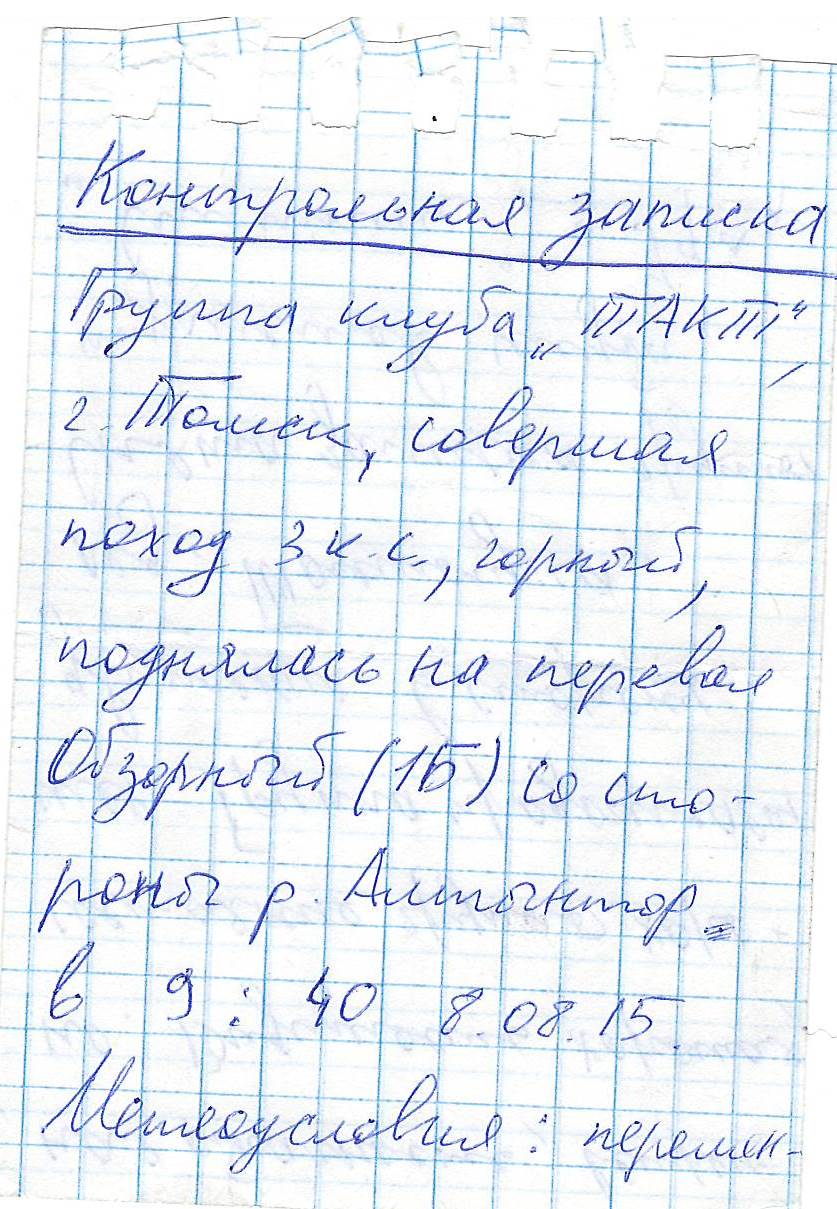 Контрольная записка
Группа клуба „ТАКТ“,
г. Томск, совершая
поход 3 к.с., горный,
поднялась на перевал
Обзорный (1Б) со сто-
роны р. Алтынтор
в 9 : 40 8.08.15.
Метеоусловия : перемен-